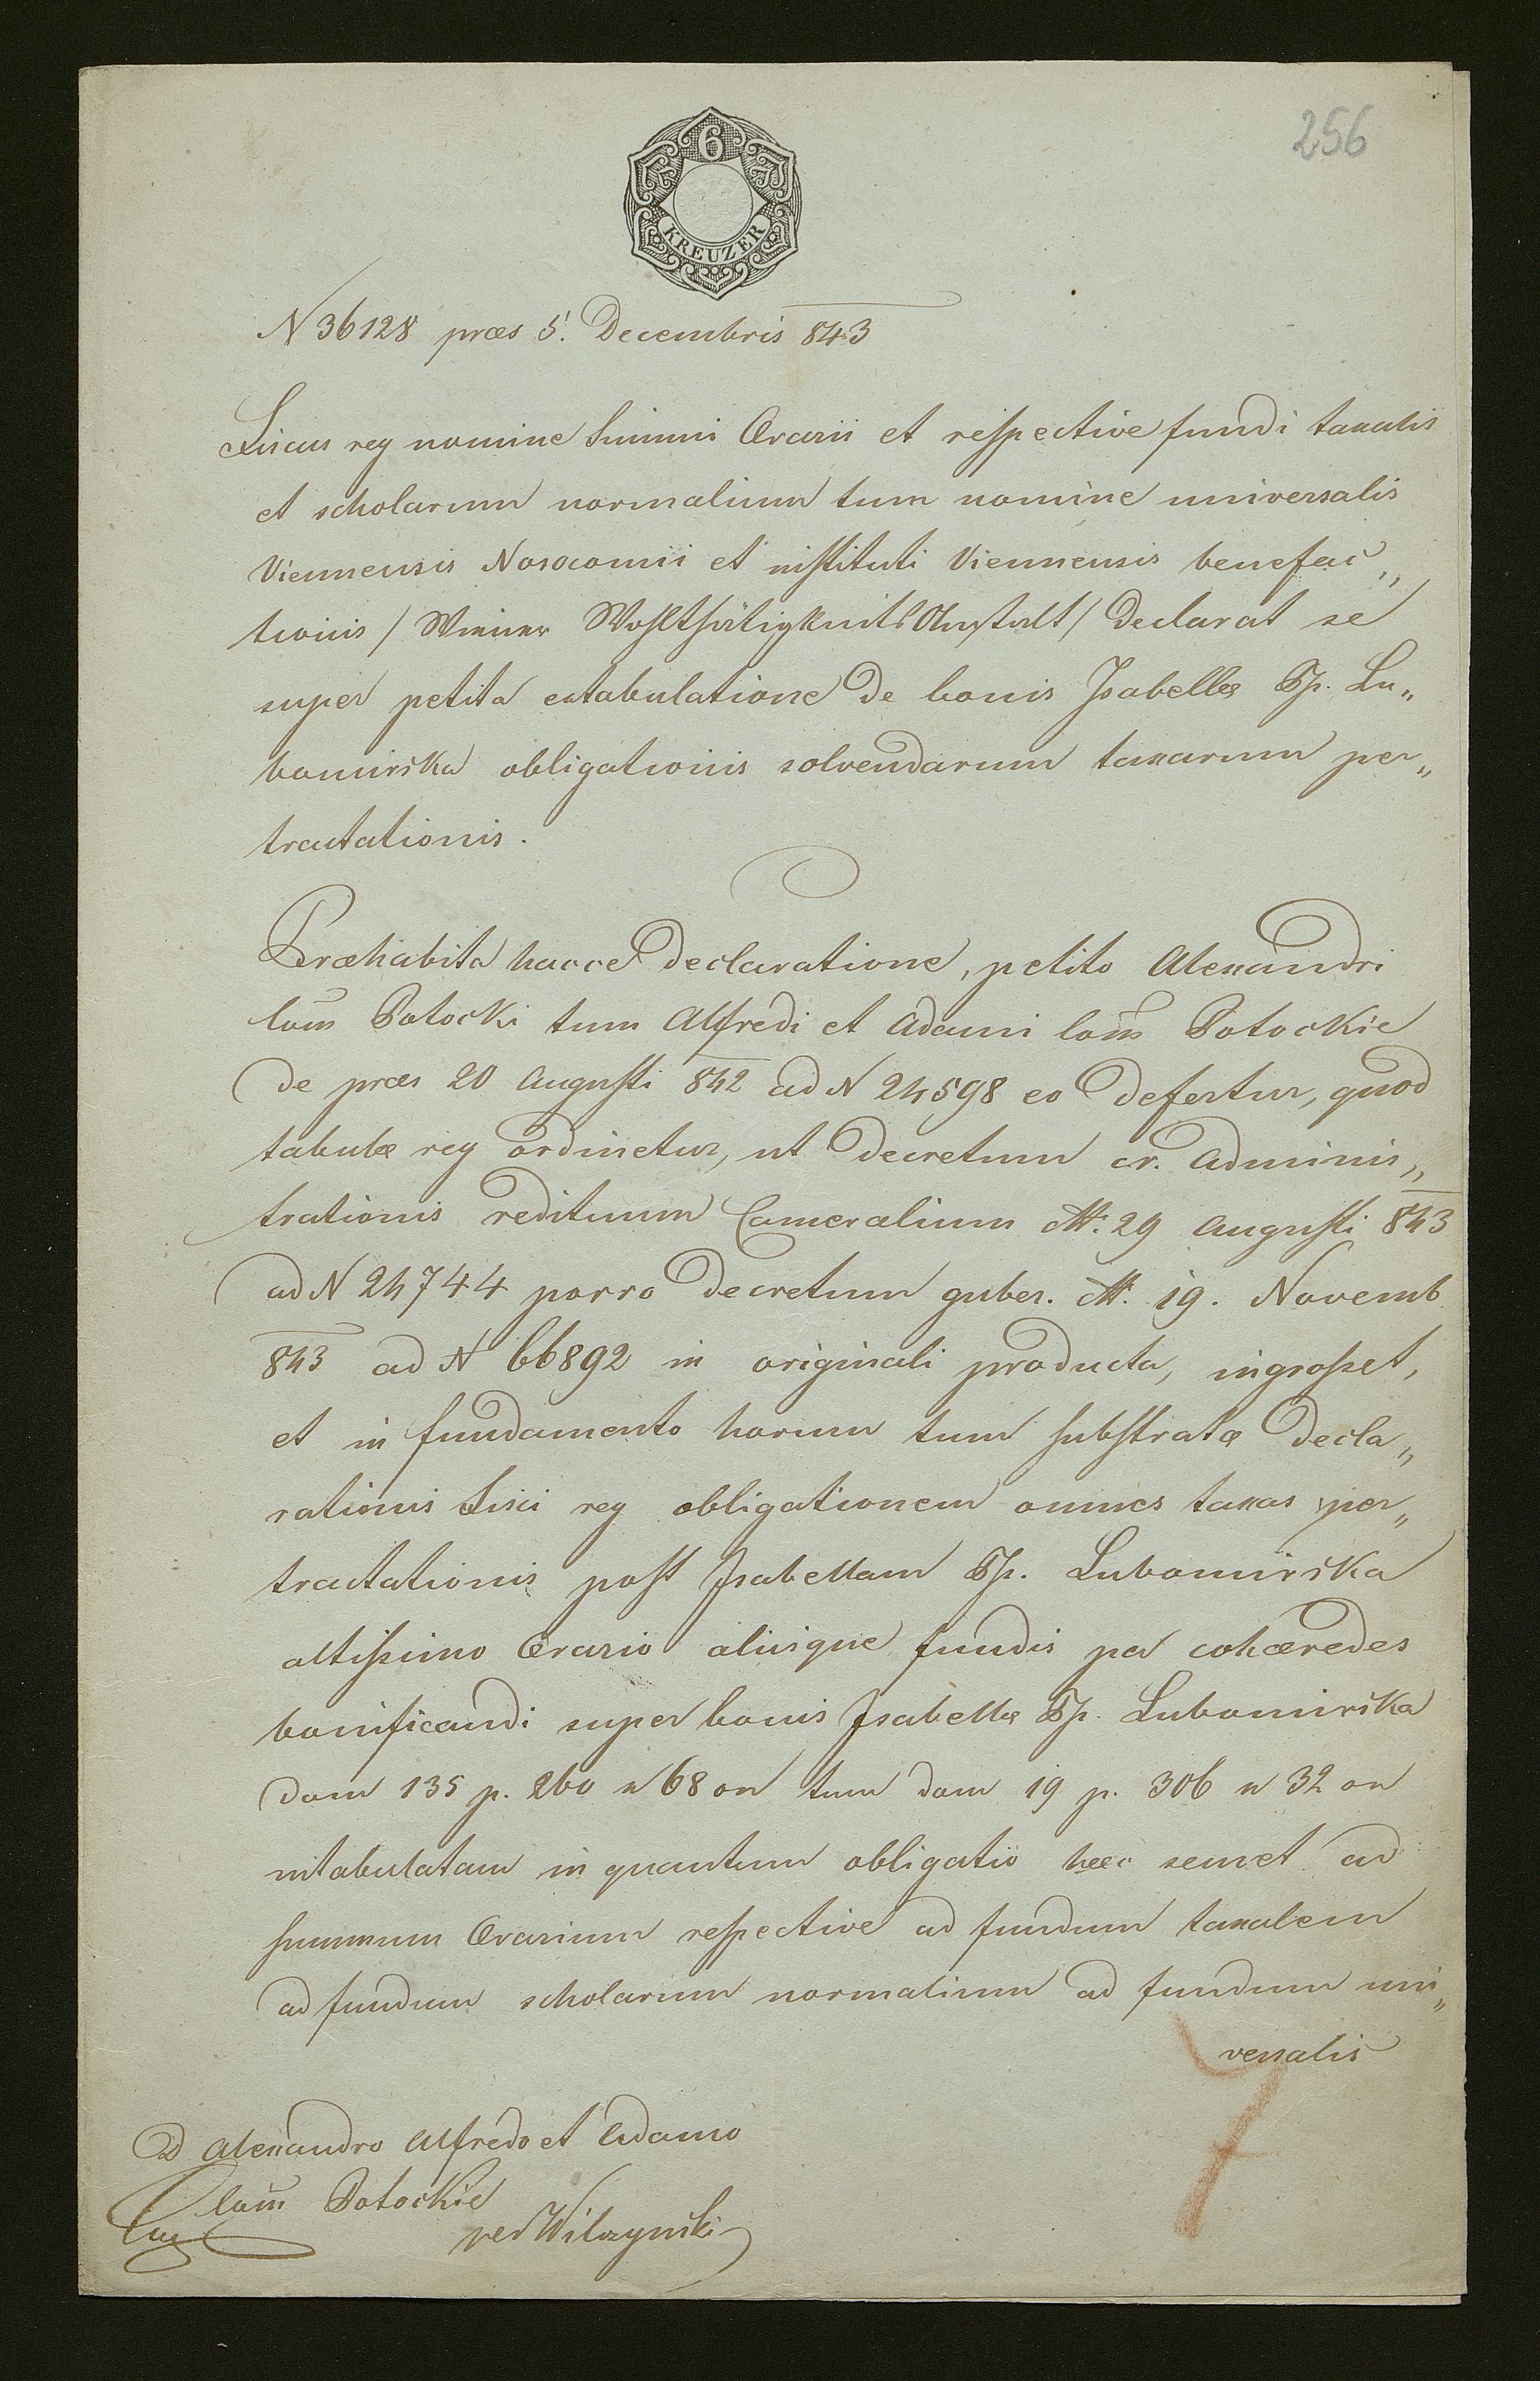 256
6
KREUZER
N 36128 præs 5. Decembris 843
Fiscus reg nomine Summi Ærarii et respective fundi taxalis
et scholarum normalium tum nomine universalis
Viennensis Nosocomii et instituti Viennensis benefac„
tionis / Wiener Wohlthätigkeits Anstalt / declarat se
super petita extabulatione de bonis Isabellæ Pp. Lu„
bomirska obligationis solvendarum taxarum per„
tractationis.
Præhabita hacce declaratione, petito Alexandri
Com Potocki tum Alfredi et Adami Com Potockie
de præs 20 Augusti 842 ad N 24598 eo defertur, quod
tabulæ reg ordinetur, ut decretum cr. Adminis„
trationis redituum Cameralium dtt. 29 Augusti 843
ad N 24744 porro decretum guber. dtt. 19. Novemb
843 ad N 66892 in originali producta, ingrosset,
et in fundamento horum tum substratæ decla„
rationis Fisci reg obligationem omnes taxas per„
tractationis post Isabellam Pp. Lubomirska
altissimo Ærario aliisque fundis per cohæredes
bonificandi super bonis Isabellæ Pp. Lubomirska
dom 135 p. 260 n 68 on tum dom 19 p. 306 n 32 on
intabulatam in quantum obligatio hæc semet ad
summum Ærarium respective ad fundum taxalem
ad fundum scholarum normalium ad fundum uni„
versalis
D Alexandro Alfredo et Adamo
Com Potockie
per Wilczynski